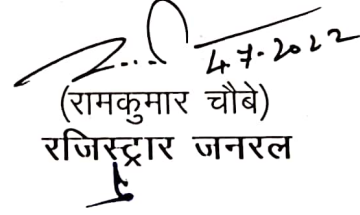 4-7-2022
(रामकुमार चौबे)
रजिस्ट्रार जनरल